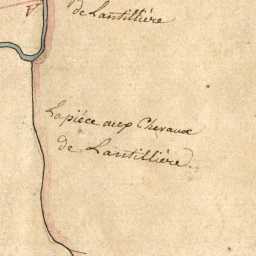 V
de Lantillière
La piéce aux Chevaux
de Lantillière.